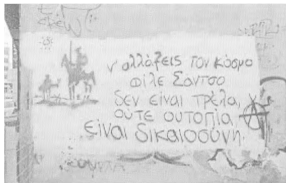 ν' αλλάξεις τον κόσμο
φίλε Σάντσο
δεν είναι τρέλα,
ούτε ουτοπία,
είναι δικαιοσύνη.